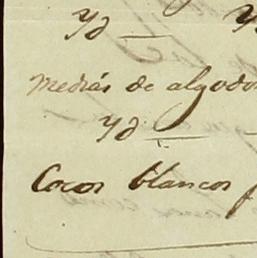 Yd — Y
Medias de algodo
Yd —
Cocos blancos f